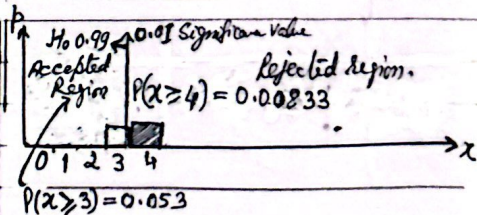 p
H₀ 0.99 0.01 Significance Value
Accepted Region
Rejected region.
P(x ≥ 4) = 0.00833
0 1 2 3 4 x
P(x ≥ 3) = 0.053